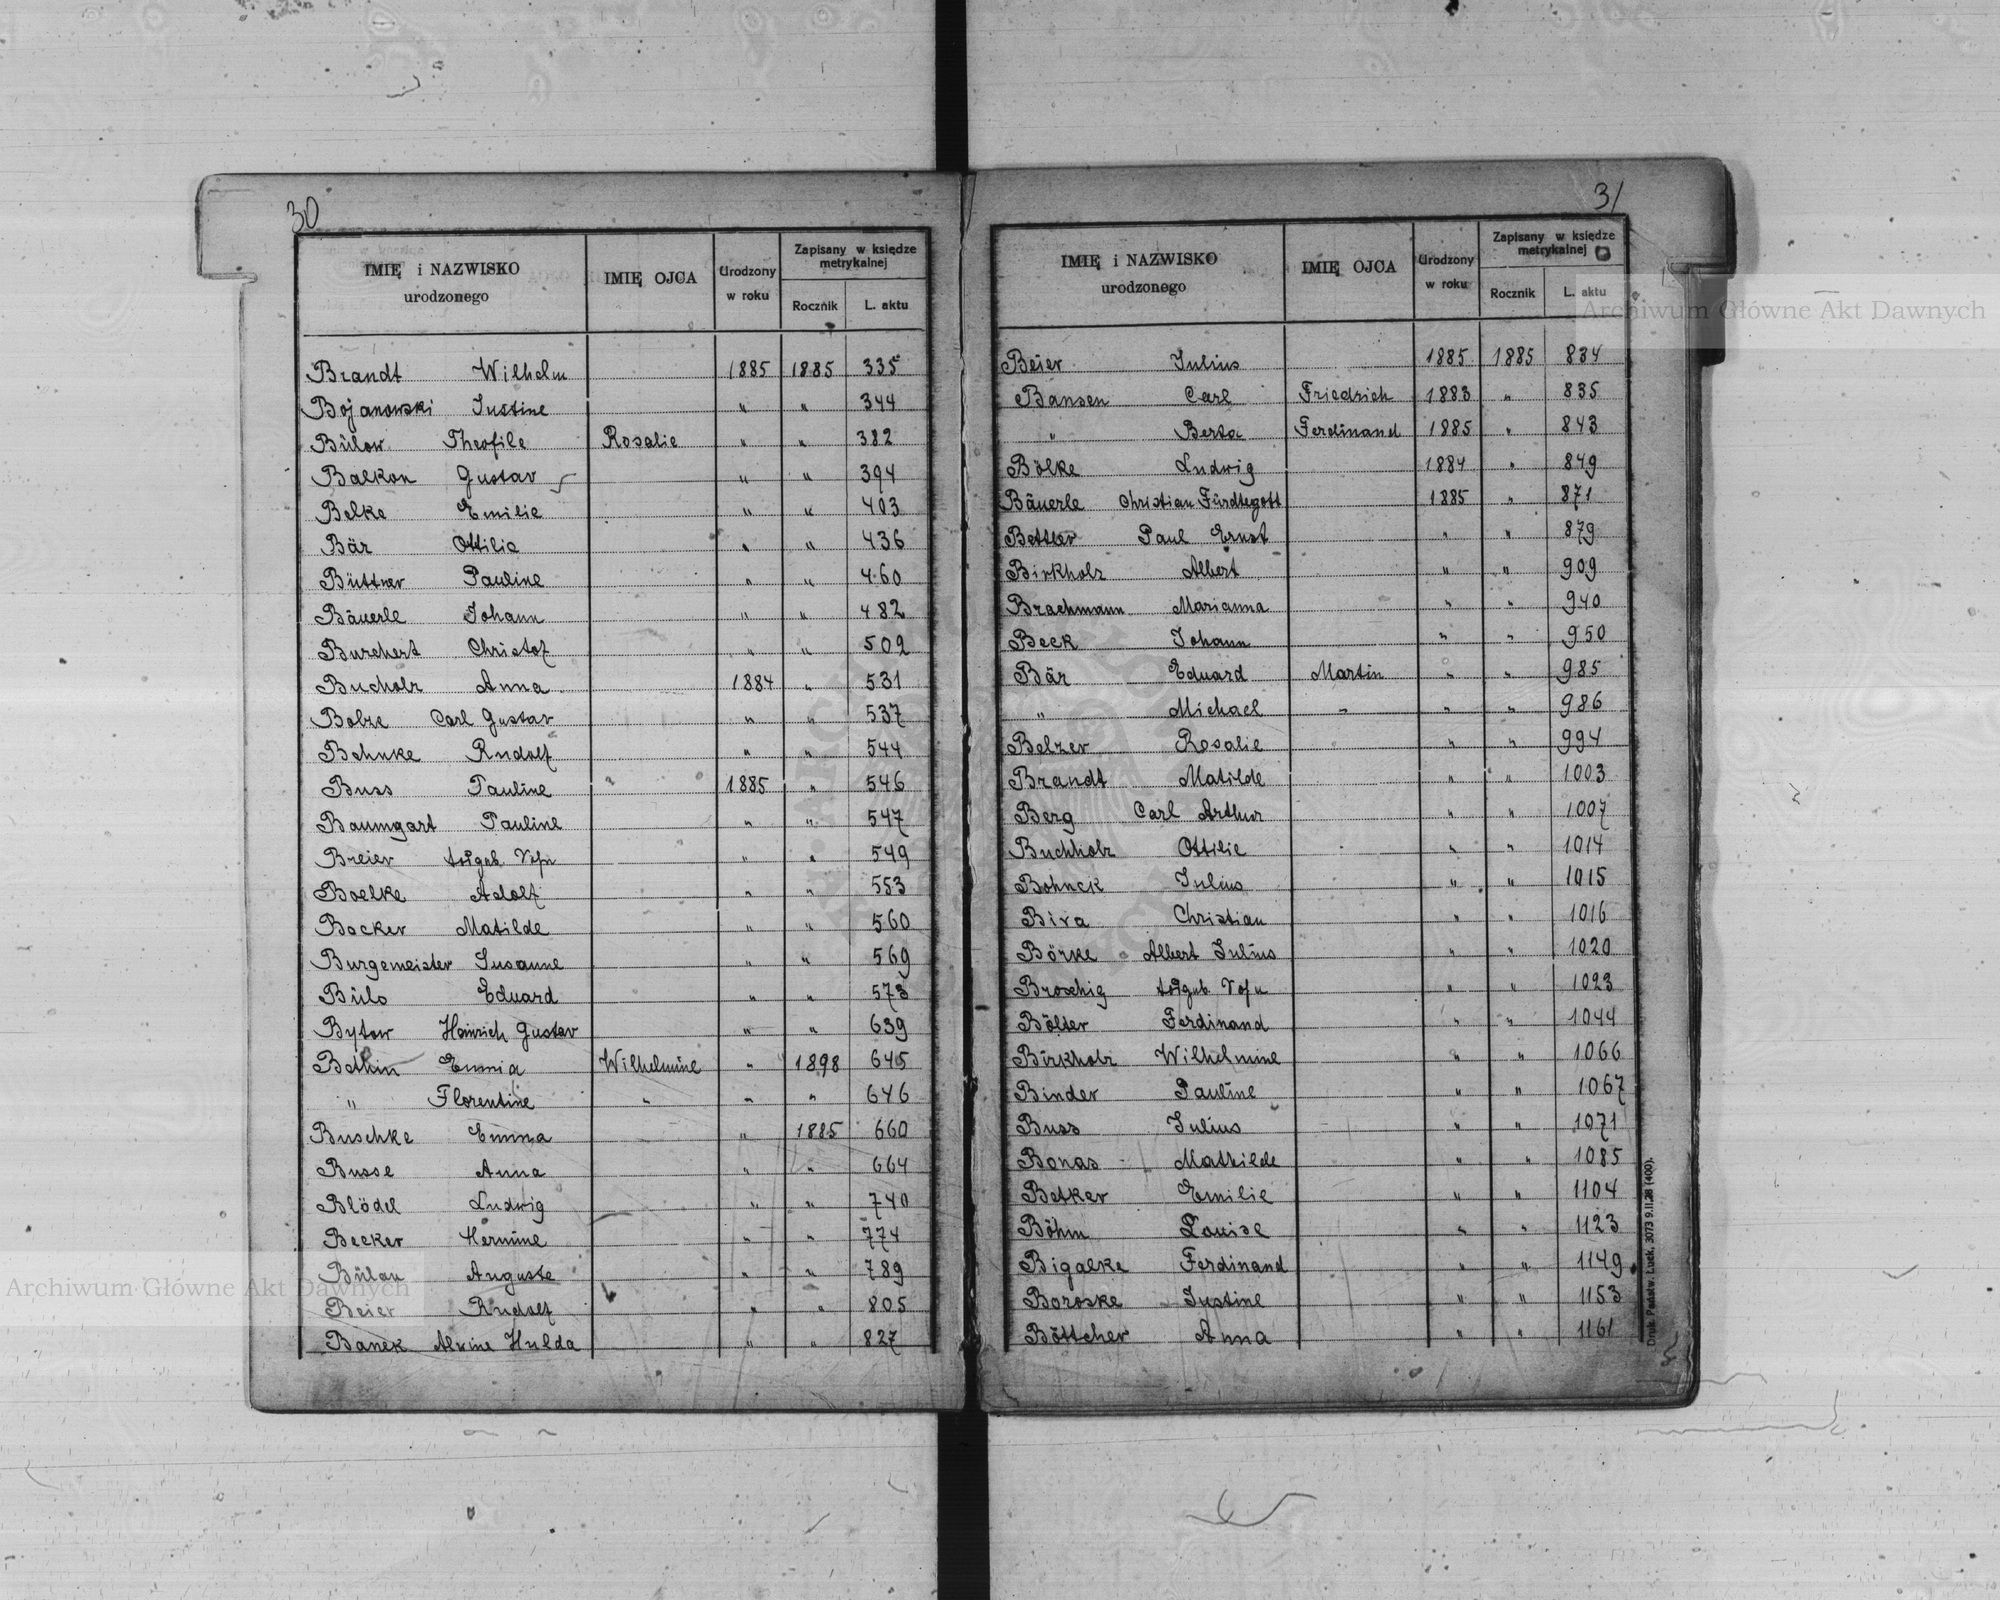 30
IMIĘ i NAZWISKO urodzonego IMIĘ OJCA Urodzony w roku Zapisany w księdze metrykalnej Rocznik L. aktu
Brandt Wilhelm 1885 1885 335
Bojanowski Justine " " 344
Bülow Theofile Rosalie " " 382
Balkon Gustav " " 394
Belke Emilie " " 403
Bär Ottilie " " 436
Büttner Pauline " " 460
Bäuerle Johann " " 482
Burchert Christof " " 502
Bucholz Anna 1884 " 531
Bolze Carl Gustav " " 537
Behnke Rudolf " " 544
Buss Pauline 1885 " 546
Baumgart Pauline " " 547
Breier " " 549
Boelke Adolf " " 553
Bocker Matilde " " 560
Burgemeister Susanne " " 569
Bülo Eduard " " 573
Bytow Heinrich Gustav " " 639
Bethin Emma Wilhelmine " 1898 645
" Florentine " " " 646
Buschke Emma " 1885 660
Busse Anna " " 664
Blödel Ludwig " " 740
Becker Hermine " " 774
Bülau Auguste " " 789
Beier Rudolf " " 805
Banek Alvine Hulda " " 827
31
IMIĘ i NAZWISKO urodzonego IMIĘ OJCA Urodzony w roku Zapisany w księdze metrykalnej Rocznik L. aktu
Beier Julius 1885 1885 834
Bansen Carl Friedrich 1883 " 835
" Berta Ferdinand 1885 " 843
Bölke Ludwig 1884 " 849
Bäuerle Christian Fürdtegott 1885 " 871
Bettler Paul Ernst " " 879
Birkholz Albert " " 909
Brachmann Marianna " " 940
Beck Johann " " 950
Bär Eduard Martin " " 985
" Michael " " " 986
Belzer Rosalie " " 994
Brandt Matilde " " 1003
Berg Carl Arthur " " 1007
Buchholz Ottilie " " 1014
Bohnck Julius " " 1015
Bira Christian " " 1016
Börke Albert Julius " " 1020
Broschig " " 1023
Bölter Ferdinand " " 1044
Birkholz Wilhelmine " " 1066
Binder Pauline " " 1067
Buss Julius " " 1071
Bonas Mathilde " " 1085
Betker Emilie " " 1104
Böhm Louise " " 1123
Bigalke Ferdinand " " 1149
Boroske Justine " " 1153
Böttcher Anna " " 1161
Druk. Państw. Łuck, 3073 9.II.28 (400).
Archiwum Główne Akt Dawnych
Archiwum Główne Akt Dawnych